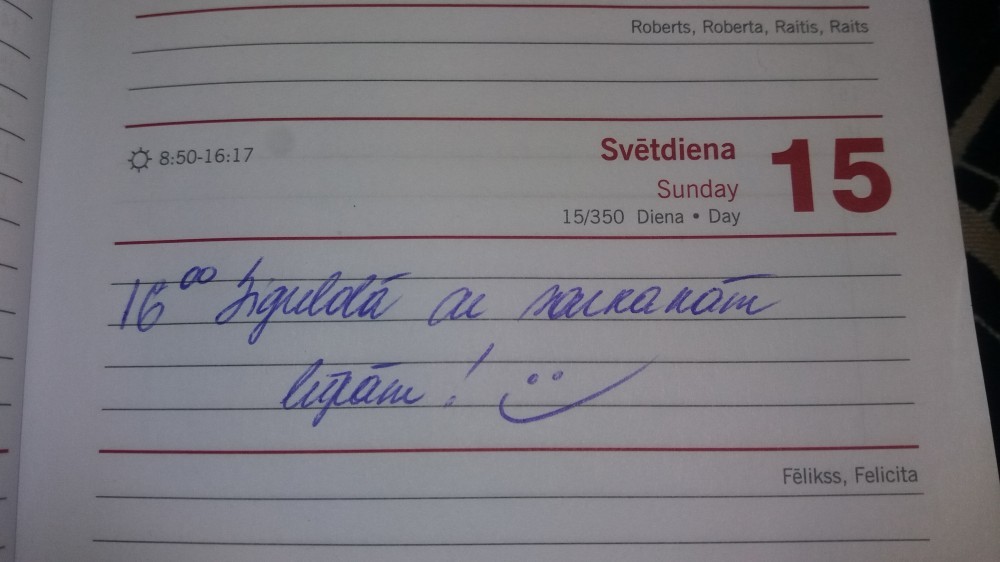 Roberts, Roberta, Raitis, Raits
8:50-16:17
Svētdiena
15
Sunday
15/350 Diena • Day
16⁰⁰ Siguldā ar sarkanām
lūpām!
Fēlikss, Felicita